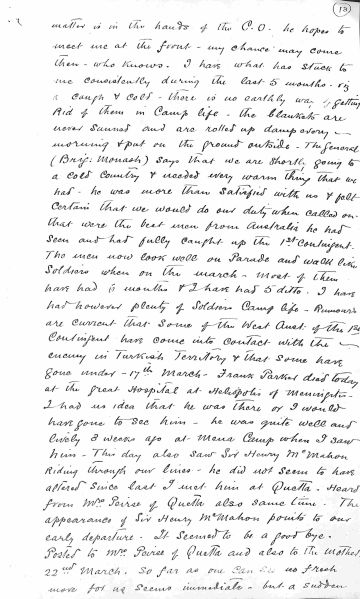 (13)
matter is in the hands of the C.O. he hopes to
meet me at the front - my chance may come
then - who knows. I have what has stuck to
me consistently during the last 5 months. viz
a cough & cold - there is no earthly way of getting
Rid of them in Camp life - the blankets are
never sunned and are rolled up damp every
morning & put on the ground outside. The General
(Brig: Monash) says that we are shortly going to
a cold country & needed every warm thing that we
had - he was more than satisfied with us & felt
certain that we would do our duty when called on.
that were the best men from Australia he had
seen and had fully caught up the 1st Contingent.
The men now look well on Parade and walk like
Soldiers when on the march - most of them
have had 6 months & I have had 5 ditto. I have
had however plenty of Soldiers Camp life - Rumours
are current that some of the West Aust. of the 1st
Contingent have come into contact with the
enemy in Turkish Territory & that some have
gone under - 17th March - Frank Parker died today
at the great Hospital at Heliopolis of Meningitis -
I had no idea that he was there or I would
have gone to see him - he was quite well and
lively 3 weeks ago at Mena Camp when I saw
him - This day also saw Sir Henry McMahon
Riding through our lines - he did not seem to have
altered since last I met him at Quetta. Heard
from Mrs Peirse of Quetta also same time. The
appearance of Sir Henry McMahon points to our
early departure. It seemed to be a good bye.
Posted to Mrs. Peirse of Quetta and also to the Mother
22nd March. So far as one can see no fresh
move for us seems immediate - but a sudden